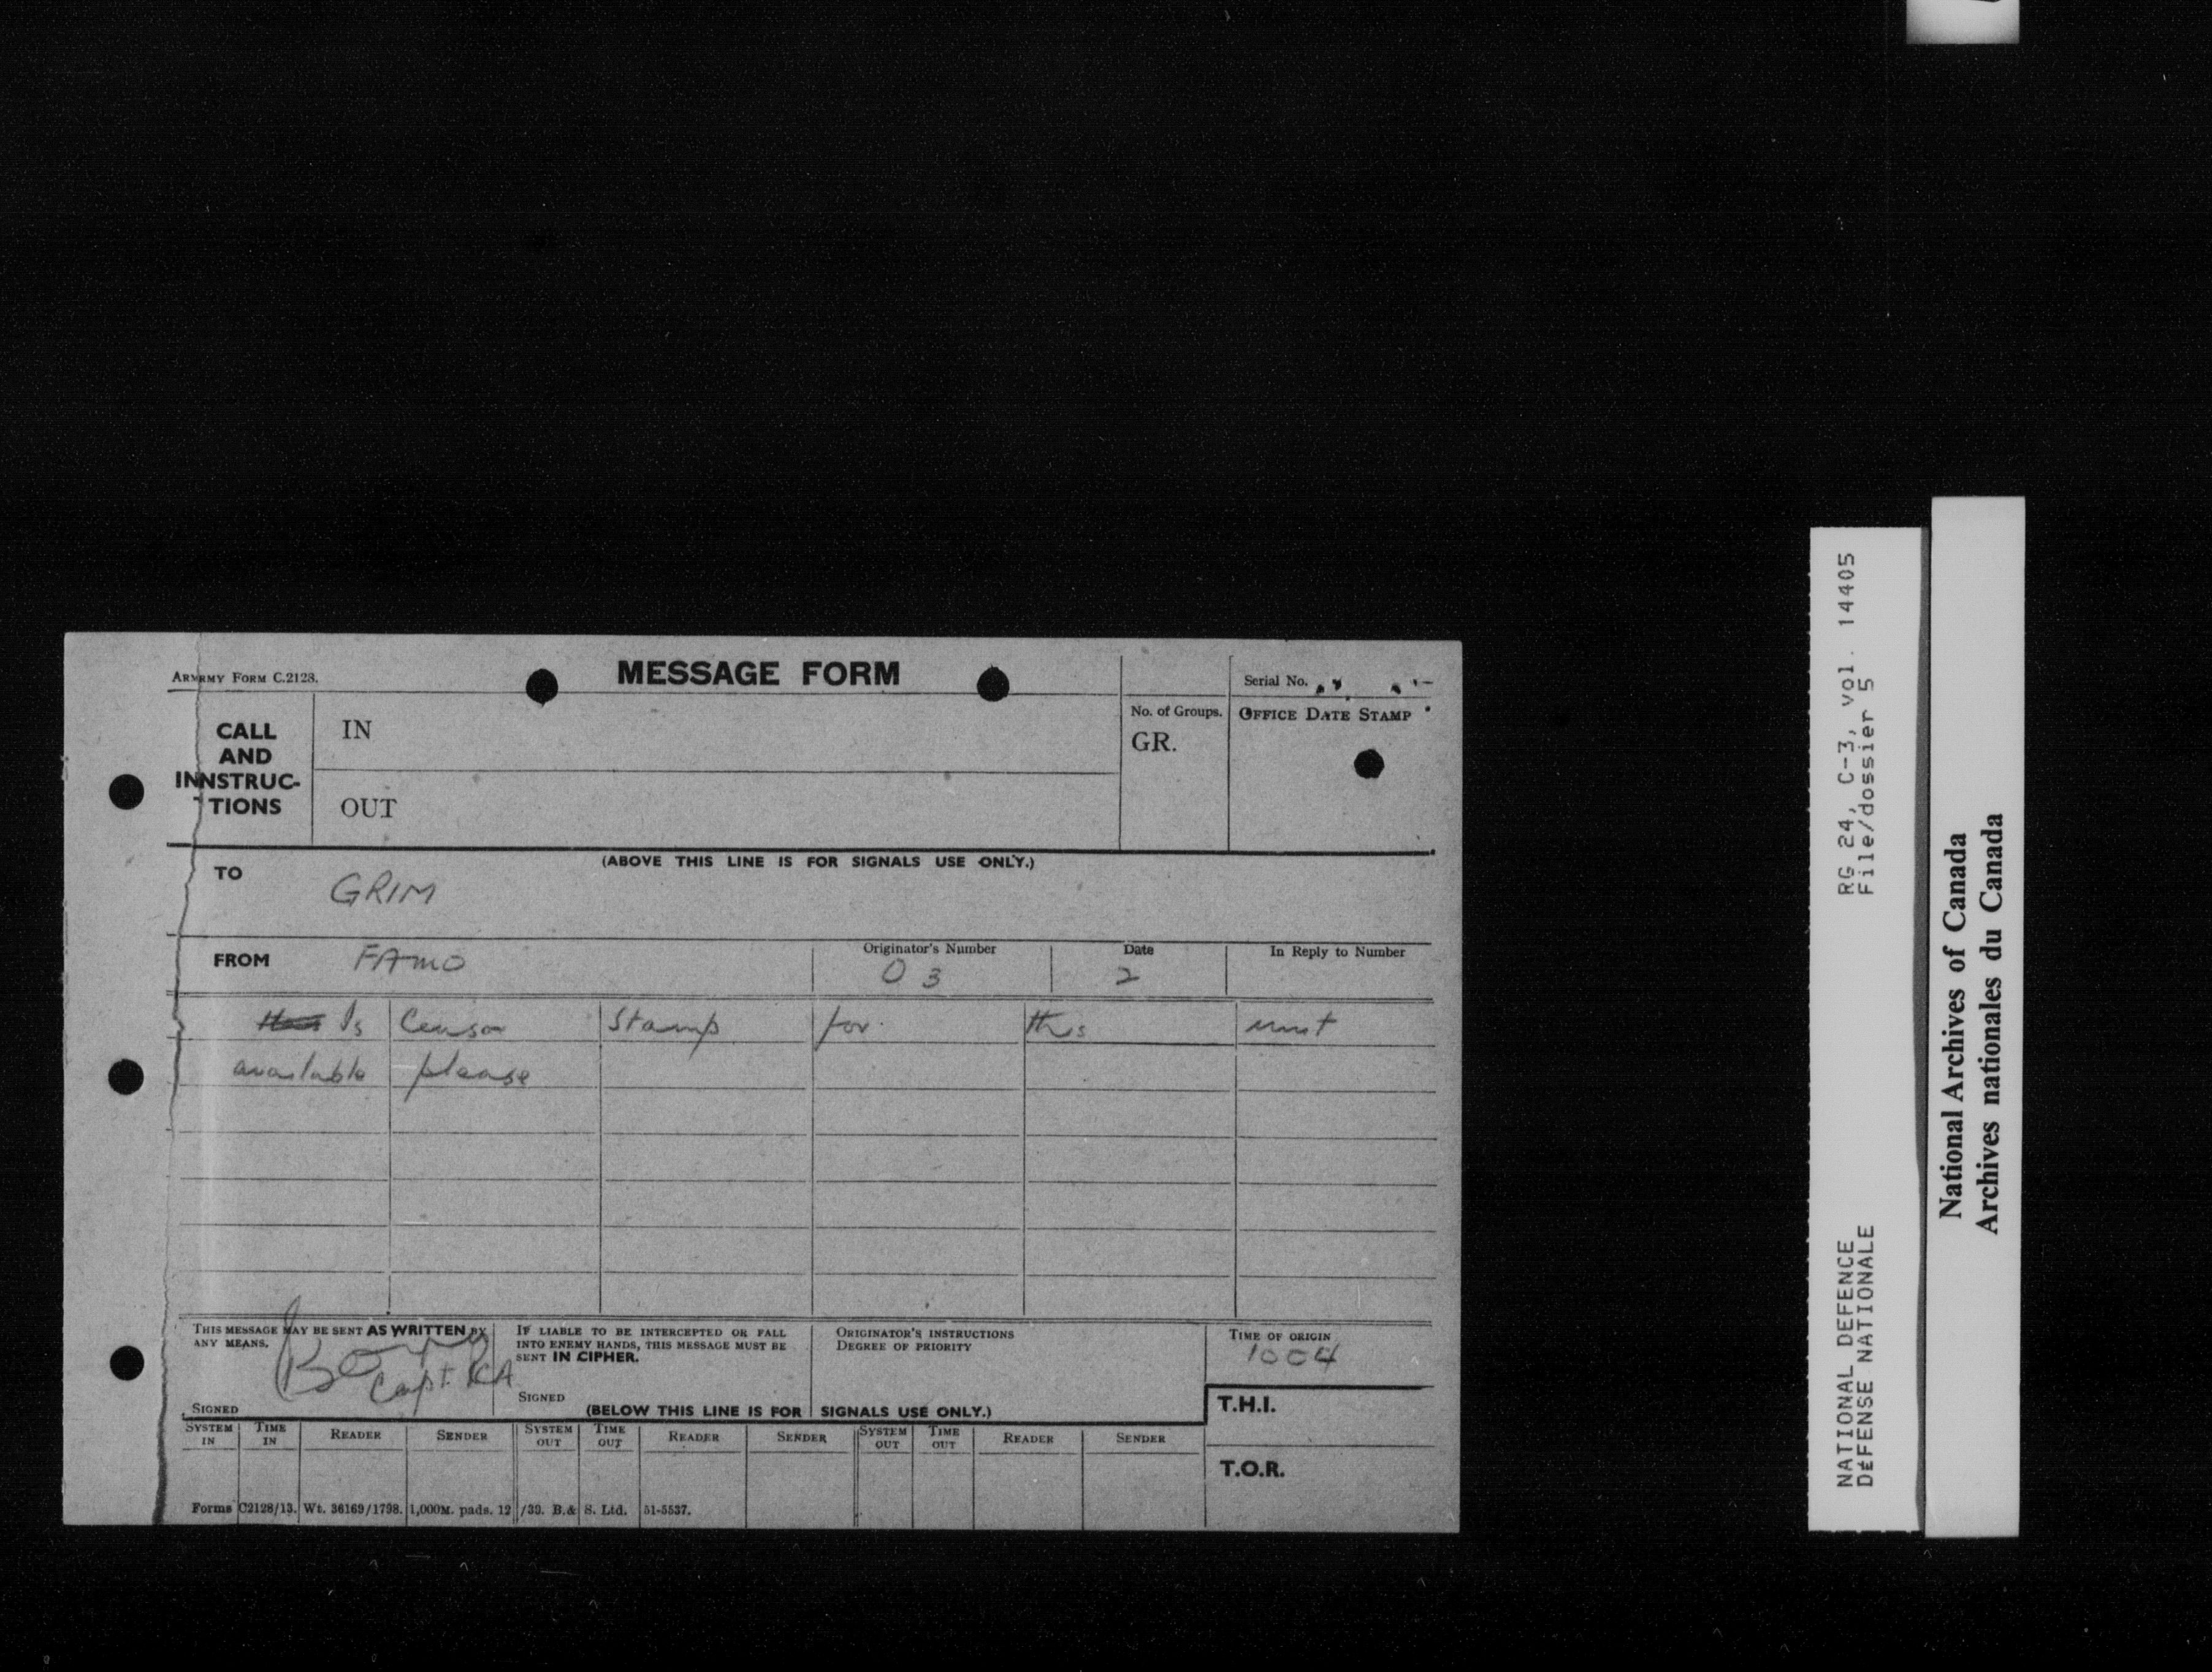 ARMY FORM C.2128.
MESSAGE FORM
Serial No.
CALL AND INSTRUC-TIONS
IN
OUT
No. of Groups.
GR.
OFFICE DATE STAMP
(ABOVE THIS LINE IS FOR SIGNALS USE ONLY.)
TO GRIM
FROM FAMO
Originator's Number
03
Date
2
In Reply to Number
Is Censor Stamp for this unit
available please
THIS MESSAGE MAY BE SENT AS WRITTEN BY
ANY MEANS.
Capt. RCA
SIGNED
IF LIABLE TO BE INTERCEPTED OR FALL
INTO ENEMY HANDS, THIS MESSAGE MUST BE
SENT IN CIPHER.
SIGNED
ORIGINATOR'S INSTRUCTIONS
DEGREE OF PRIORITY
TIME OF ORIGIN
1004
(BELOW THIS LINE IS FOR SIGNALS USE ONLY.)
T.H.I.
T.O.R.
SYSTEM IN TIME IN READER SENDER SYSTEM OUT TIME OUT READER SENDER SYSTEM OUT TIME OUT READER SENDER
Forms C2128/13. Wt. 36169/1798. 1,000M. pads. 12/39. B.& S. Ltd. 51-5537.
NATIONAL DEFENCE RG 24, C-3, vol. 14405
DÉFENSE NATIONALE File/dossier 5
National Archives of Canada
Archives nationales du Canada